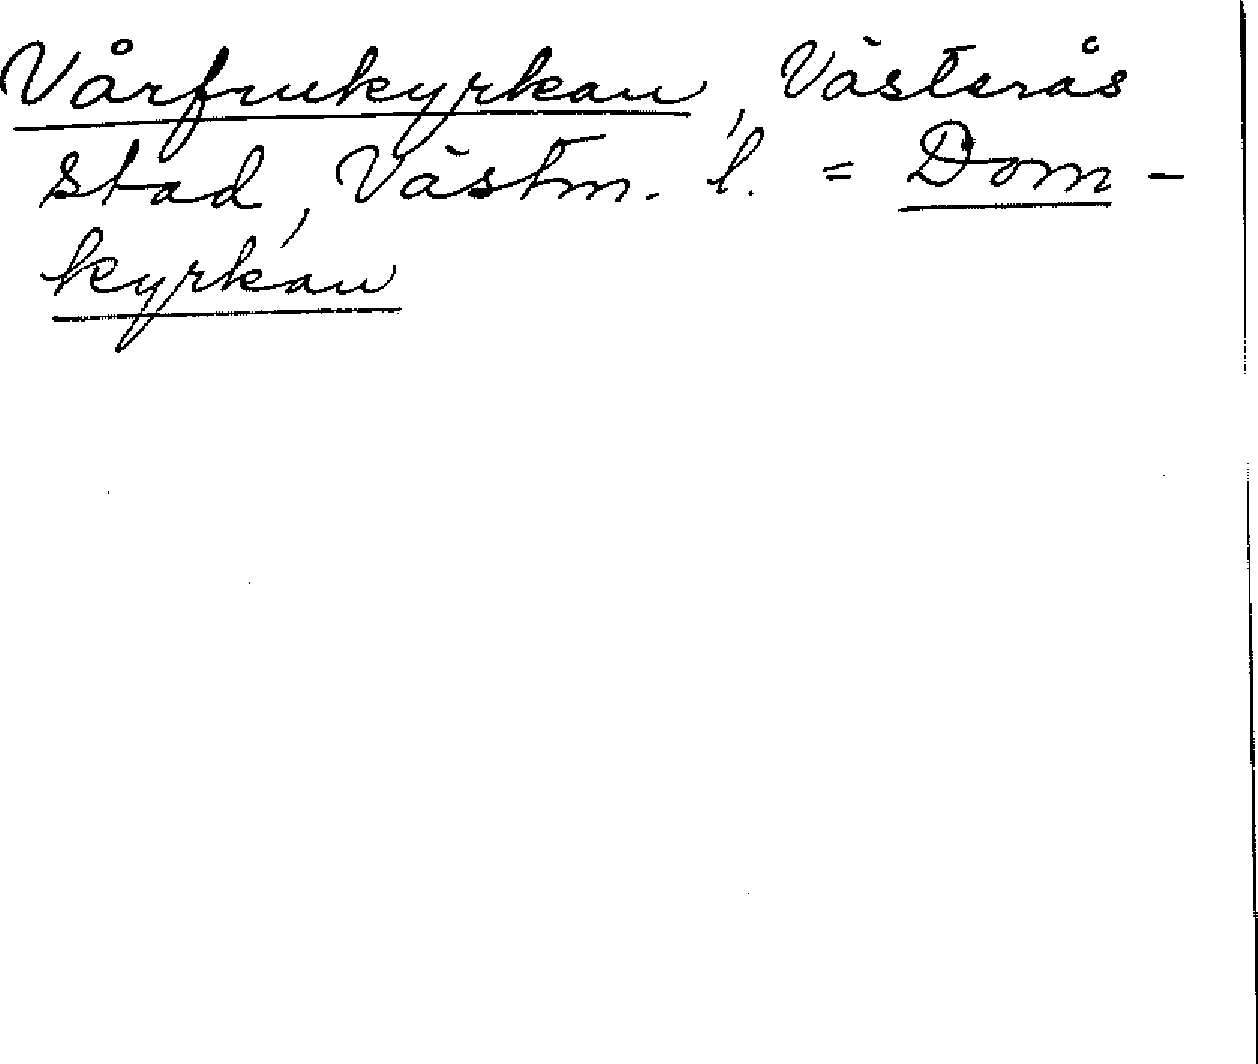 Vårfrukyrkan, Västerås
stad, Västm. l. = Dom-
kyrkan